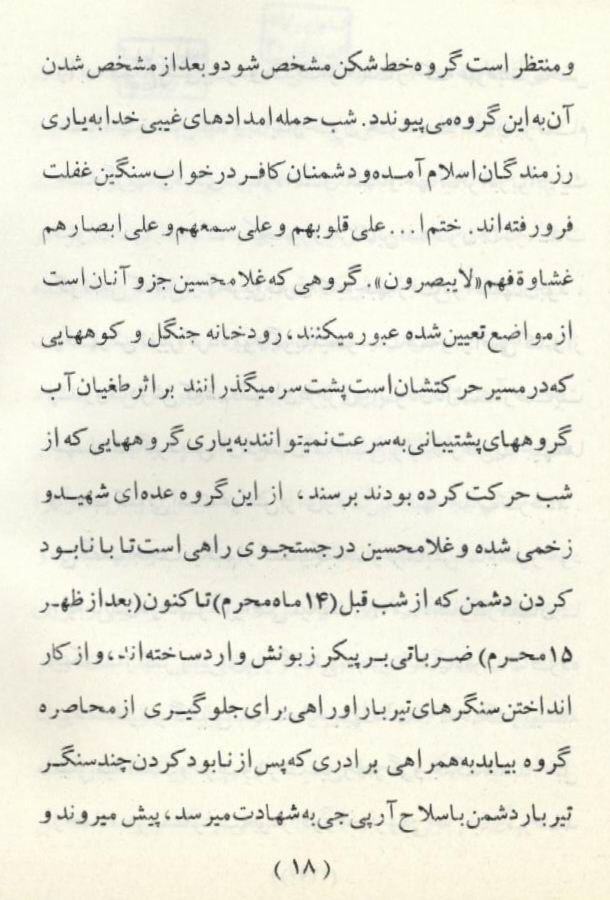 و منتظر است گروه خط شکن مشخص شود و بعد از مشخص شدن
آن به این گروه می پیوندد. شب حمله امدادهای غیبی خدا به یاری
رزمندگان اسلام آمده و دشمنان کافر در خواب سنگین غفلت
فرو رفته اند. ختم ا... علی قلوبهم و علی سمعهم و علی ابصارهم
غشاوة فهم «لایبصرون». گروهی که غلامحسین جزو آنان است
از مواضع تعیین شده عبور میکنند، رودخانه جنگل و کوههایی
که در مسیر حرکتشان است پشت سر میگذرانند بر اثر طغیان آب
گروههای پشتیبانی به سرعت نمیتوانند به یاری گروههایی که از
شب حرکت کرده بودند برسند، از این گروه عده ای شهید و
زخمی شده و غلامحسین در جستجوی راهی است تا با نابود
کردن دشمن که از شب قبل (۱۴ ماه محرم) تا کنون (بعد از ظهر
۱۵ محرم) ضرباتی بر پیکر زبونش وارد ساخته اند، و از کار
انداختن سنگرهای تیربار او راهی برای جلوگیری از محاصره
گروه بیابد به همراهی برادری که پس از نابود کردن چند سنگر
تیربار دشمن با سلاح آر پی جی به شهادت میرسد، پیش میروند و
(۱۸)